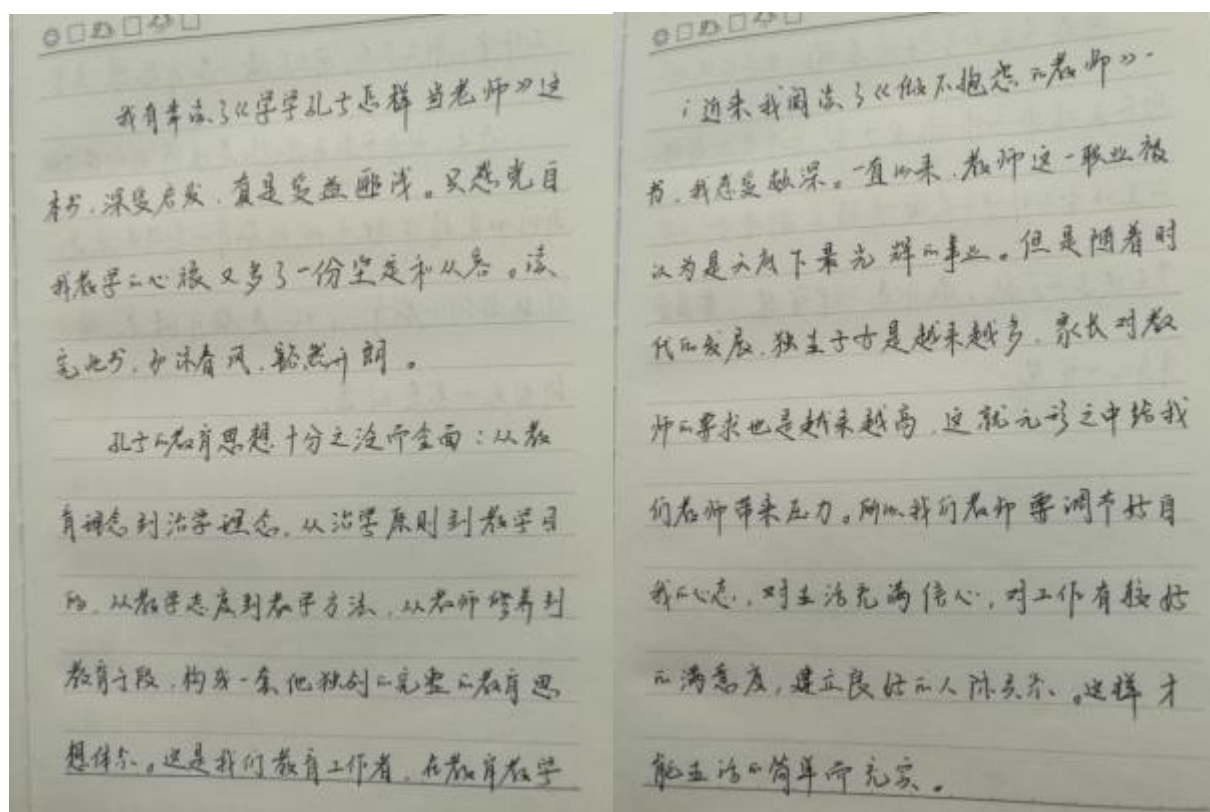 我有幸读了《学学孔子怎样当老师》这
本书，深受启发，真是受益匪浅。只感觉自
我教学的心旅又多了一份坚定和从容。读
完此书，如沐春风，豁然开朗。
孔子的教育思想十分之泛而全面：从教
育理念到治学理念，从治学原则到教学目
的，从教学态度到教学方法，从教师修养到
教育手段，构成一套他独创的完整的教育思
想体系。这是我们教育工作者，在教育教学
近来我阅读了《做不抱怨的教师》一
书，我感受越深。一直以来，教师这一职业被
认为是天底下最光辉的事业。但是随着时
代的发展，独生子女是越来越多，家长对教
师的要求也是越来越高，这就无形之中给我
们教师带来压力。所以我们教师要调节好自
我的心态，对生活充满信心，对工作有较好
的满意度，建立良好的人际关系。这样才
能生活的简单而充实。